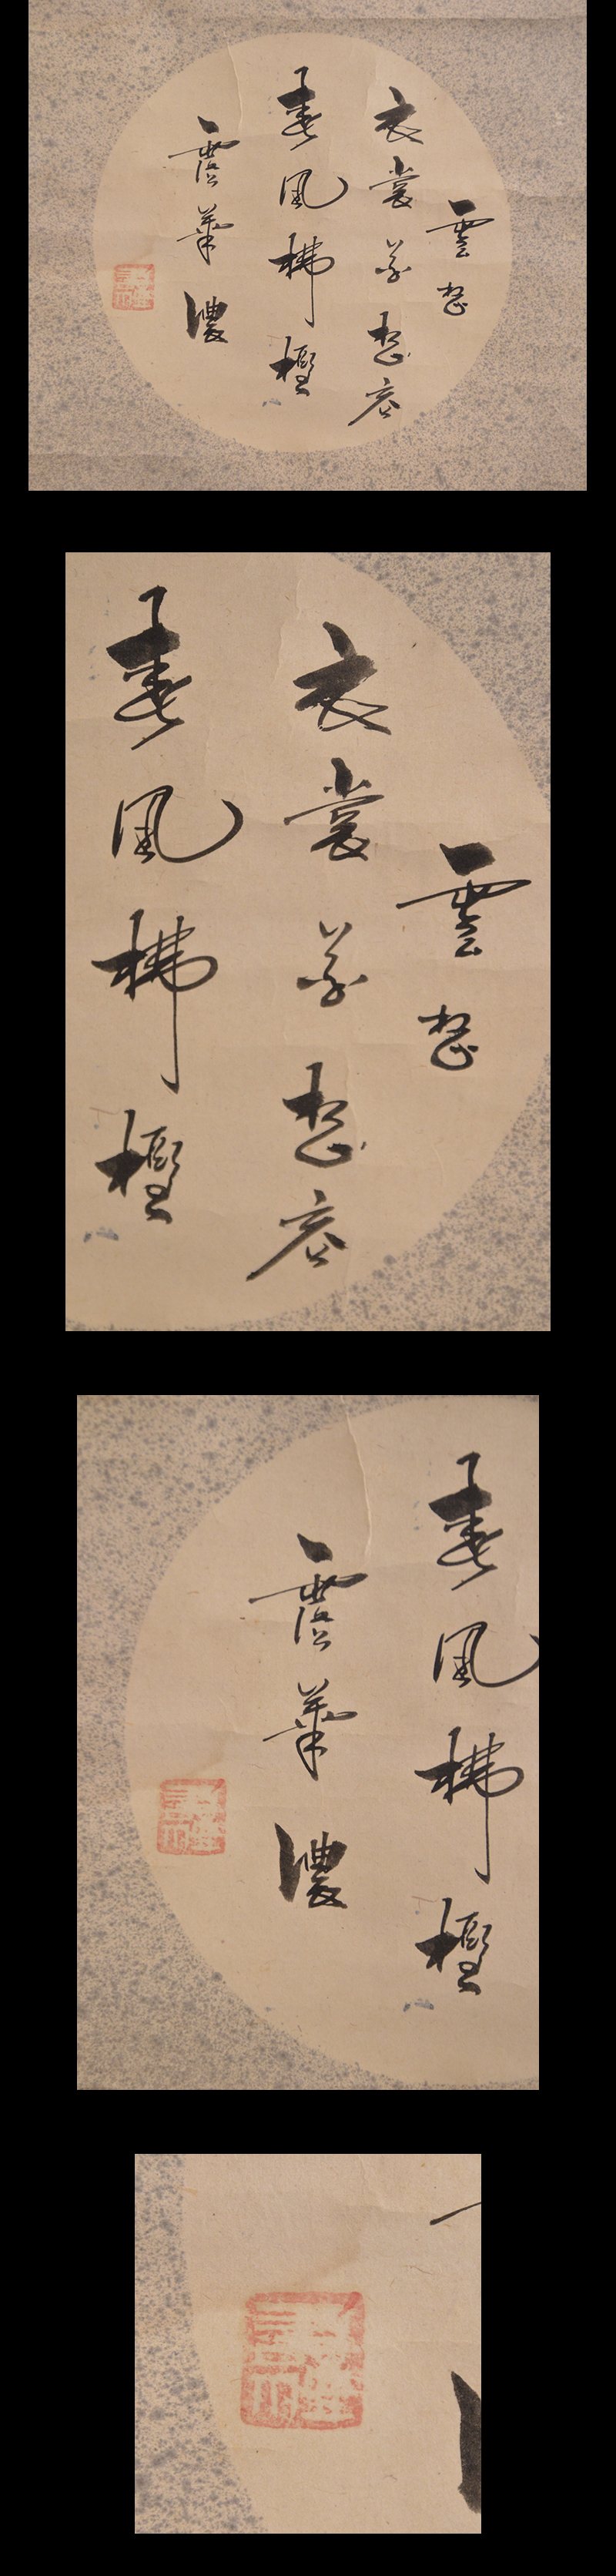 雲想
衣裳花想容
春風拂檻
露華濃